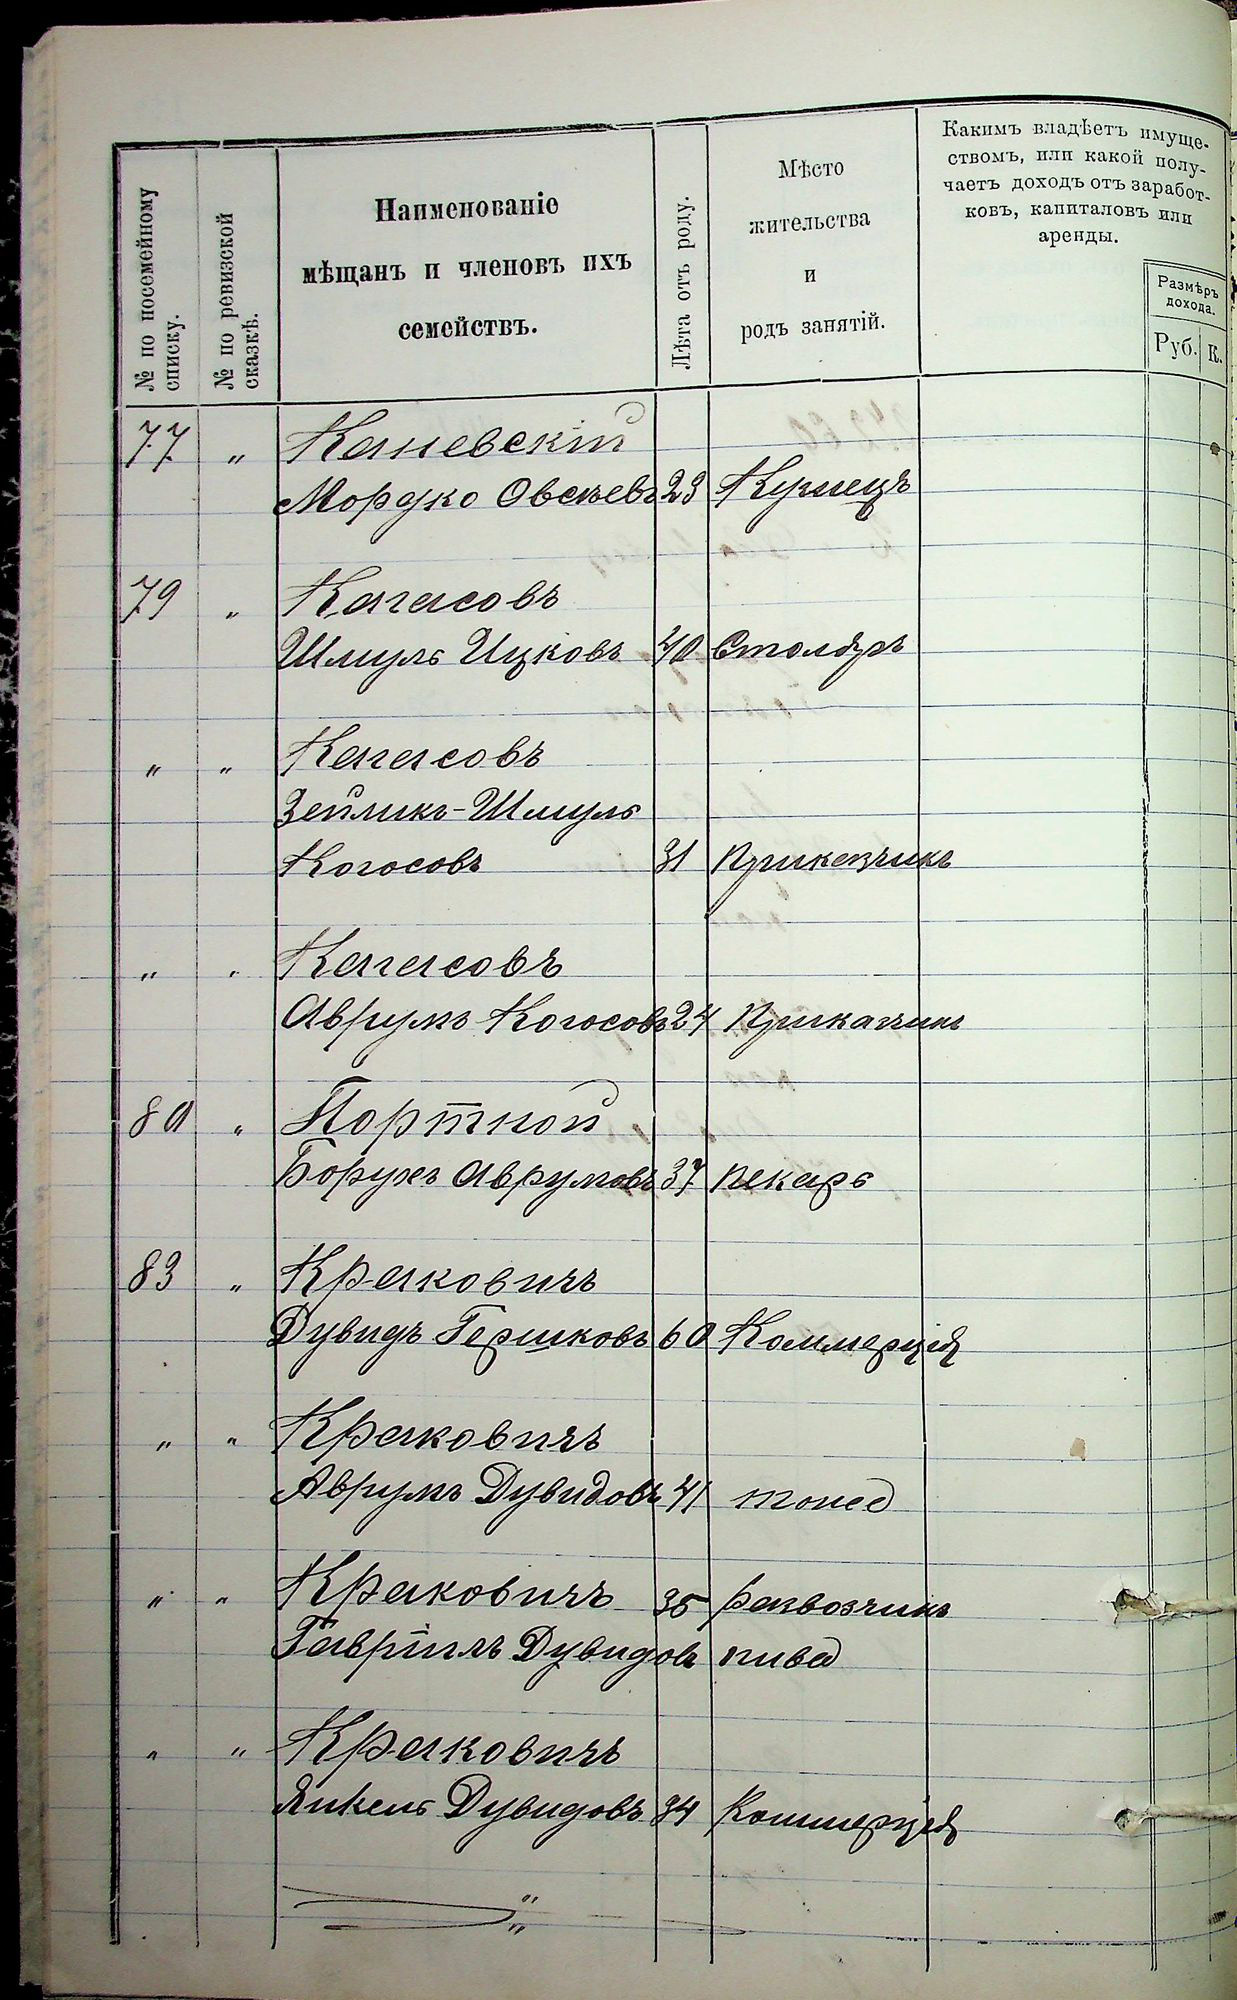 № по посемейному
списку.
№ по ревизской
сказкѣ.
Наименованіе
мѣщанъ и членовъ ихъ
семействъ.
Лѣта отъ роду.
Мѣсто
жительства
и
родъ занятій.
Какимъ владѣетъ имуще-
ствомъ, или какой полу-
чаетъ доходъ отъ заработ-
ковъ, капиталовъ или
аренды.
Размѣръ
дохода.
Руб. К.
77 " Каневскій
Мордко Овсѣевъ 23 Кузнецъ
79 " Кагасовъ
Шмуль Ицковъ 40 Столяръ
" " Кагасовъ
Зейликъ-Шмуль
Когосовъ 31 Приказчикъ
" " Кагасовъ
Аврумъ Когосовъ 24 Приказчикъ
80 " Портной
Борухъ Аврумовъ 37 пекарь
83 " Краковичъ
Дувидъ Гершковъ 60 Коммерція
" " Краковичъ
Аврумъ Дувидовъ 41 тоже
" " Краковичъ 35 развозчикъ
Гавріилъ Дувидовъ пива
" " Краковичъ
Янкель Дувидовъ 34 Коммерція